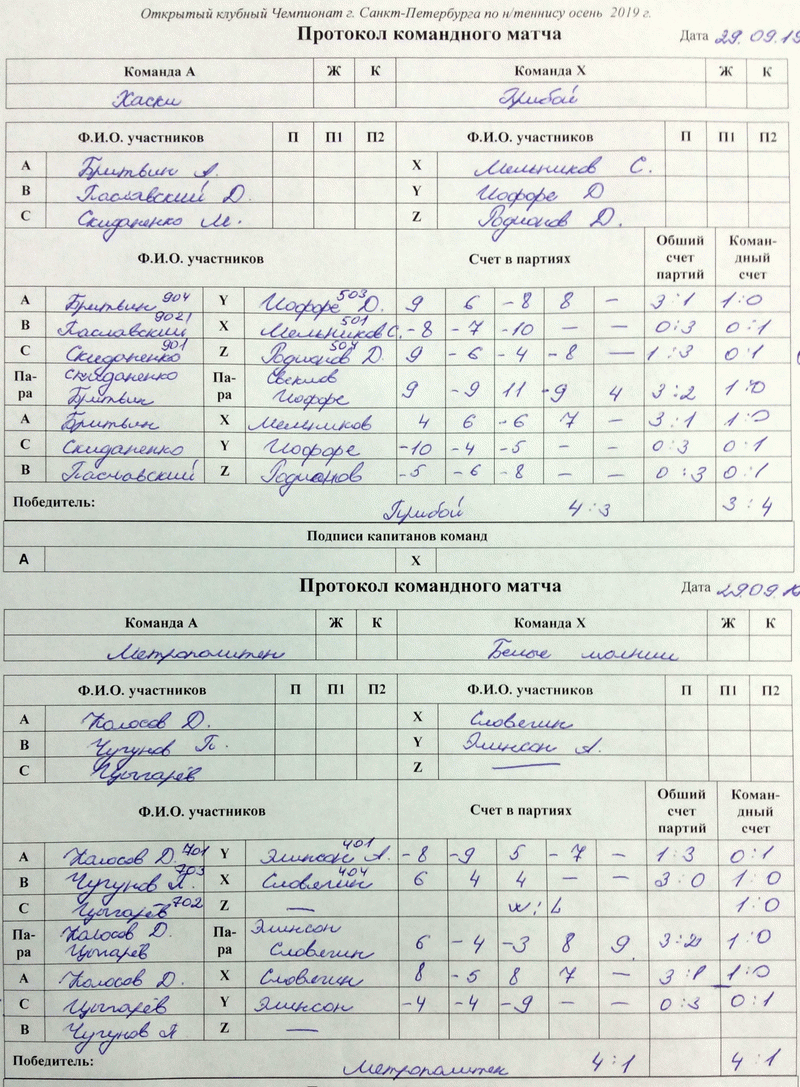 Открытый клубный Чемпионат г. Санкт-Петербурга по н/теннису осень 2019 г.
Протокол командного матча Дата 29.09.19
Команда А Ж К Команда Х Ж К
Хаски Прибой
Ф.И.О. участников П П1 П2 Ф.И.О. участников П П1 П2
А Бритвин А. X Мельников С.
В Паславский Д. Y Иоффе Д
С Скиданенко М. Z Родионов Д.
Ф.И.О. участников Счет в партиях Общий счет партий Коман-дный счет
А Бритвин 904 Y Иоффе Д. 503 9 6 -8 8 - 3:1 1:0
В Паславский 9021 X Мельников С. 501 -8 -7 -10 - - 0:3 0:1
С Скиданенко 901 Z Родионов Д. 504 9 -6 -4 -8 - 1:3 0:1
Па-ра Скиданенко Бритвин Па-ра Иоффе 9 -9 11 -9 4 3:2 1:0
А Бритвин X Мельников 4 6 -6 7 - 3:1 1:0
С Скиданенко Y Иоффе -10 -4 -5 - - 0:3 0:1
В Паславский Z Родионов -5 -6 -8 - - 0:3 0:1
Победитель: Прибой 4:3 3:4
Подписи капитанов команд
А X
Протокол командного матча Дата 29.09.19
Команда А Ж К Команда Х Ж К
Метрополитен Белые молнии
Ф.И.О. участников П П1 П2 Ф.И.О. участников П П1 П2
А Колосов Д. X Словягин
В Чугунов П. Y Элинсон А.
С Цыгарёв Z —
Ф.И.О. участников Счет в партиях Общий счет партий Коман-дный счет
А Колосов Д. 701 Y Элинсон А. 401 -8 -9 5 -7 - 1:3 0:1
В Чугунов П. 703 X Словягин 404 6 4 4 - - 3:0 1:0
С Цыгарёв 702 Z — w:L 1:0
Па-ра Колосов Д. Цыгарёв Па-ра Элинсон Словягин 6 -4 -3 8 9 3:2 1:0
А Колосов Д. X Словягин 8 -5 8 7 - 3:1 1:0
С Цыгарёв Y Элинсон -4 -4 -9 - - 0:3 0:1
В Чугунов П Z —
Победитель: Метрополитен 4:1 4:1